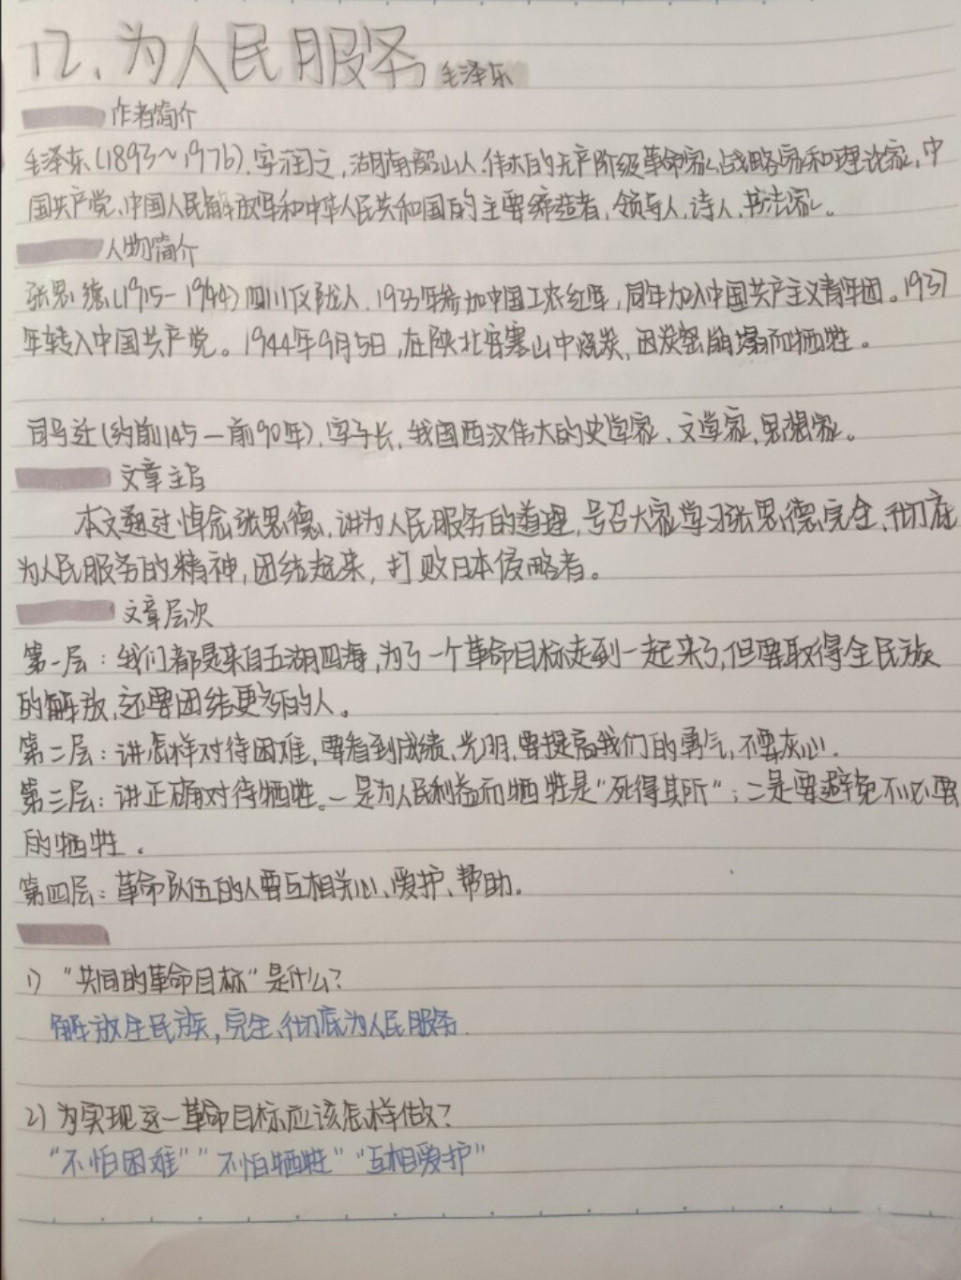 12、为人民服务 毛泽东
作者简介
毛泽东(1893~1976).字润之,湖南韶山人.伟大的无产阶级革命家、战略家和理论家,中
国共产党、中国人民解放军和中华人民共和国的主要缔造者,领导人.诗人.书法家。
人物简介
张思德(1915-1944)四川仪陇人.1933年参加中国工农红军,同年加入中国共产主义青年团。1937
年转入中国共产党。1944年9月5日,在陕北安塞山中烧炭,因炭窑崩塌而牺牲。
司马迁(约前145—前90年).字子长,我国西汉伟大的史学家、文学家,思想家。
文章主旨
本文通过悼念张思德,讲为人民服务的道理,号召大家学习张思德完全、彻底
为人民服务的精神,团结起来,打败日本侵略者。
文章层次
第一层:我们都是来自五湖四海,为了一个革命目标走到一起来了,但要取得全民族
的解放,还要团结更多的人。
第二层:讲怎样对待困难,要看到成绩、光明,要提高我们的勇气,不要灰心.
第三层:讲正确对待牺牲。一是为人民利益而牺牲是"死得其所";二是要避免不必要
的牺牲.
第四层:革命队伍的人要互相关心、爱护、帮助.
1)"共同的革命目标"是什么?
解放全民族,完全、彻底为人民服务.
2)为实现这一革命目标应该怎样做?
"不怕困难""不怕牺牲""互相爱护"